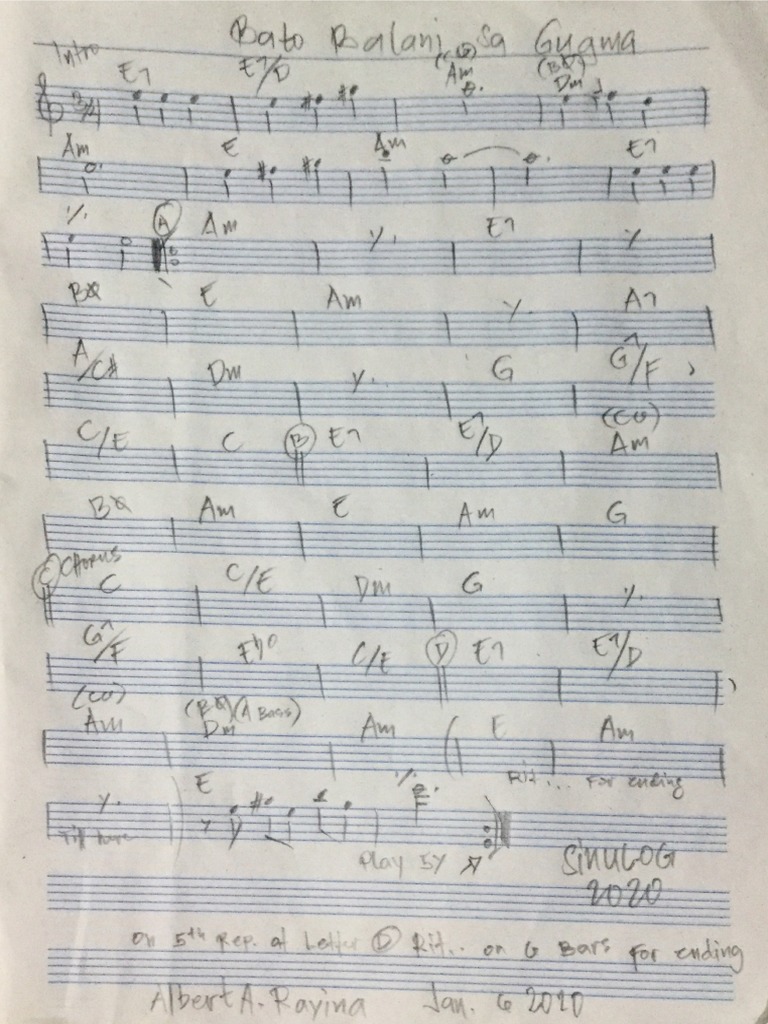 Bato Balani sa Gugma
Intro
E7 E7/D (C6) Am (BØ) Dm
3/4
Am E Am E7
٪ A Am ٪ E7 ٪
BØ E Am ٪ A7
A/C# Dm ٪ G G7/F
C/E C B E7 E7/D (C6) Am
BØ Am E Am G
C CHORUS
C C/E Dm G ٪
G7/F C/E D E7 E7/D
(C6) Am (BØ)(A Bass) Dm Am E Am
Rit... For ending
٪ E ٪
Till here
Play 5X
SINULOG
2020
on 5th Rep. at Letter D Rit.. on 6 Bars For ending
Albert A. Rayina Jan. 6 2020